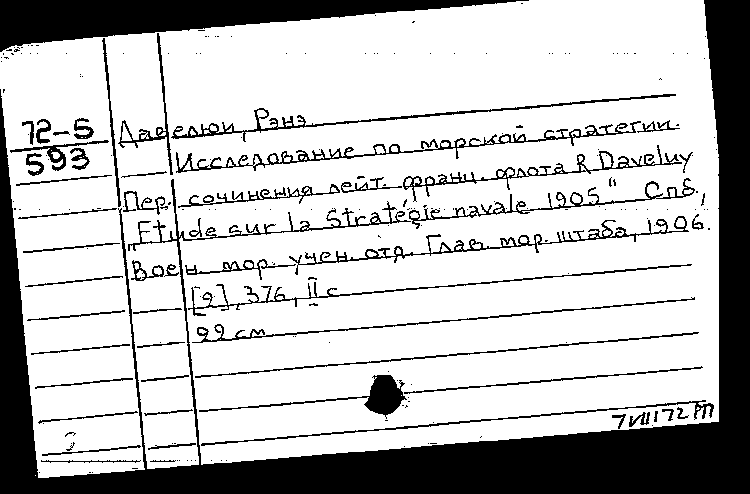 72-5
593
Давелюи, Рэнэ.
Исследование по морской стратегии.
Пер. сочинения лейт. франц. флота R Daveluy
„Etude sur la Stratégie navale 1905" Спб.,
Воен. мор. учен. отд. Глав. мор. штаба, 1906.
[2], 376, II с
22 см
7 VIII 72 РП